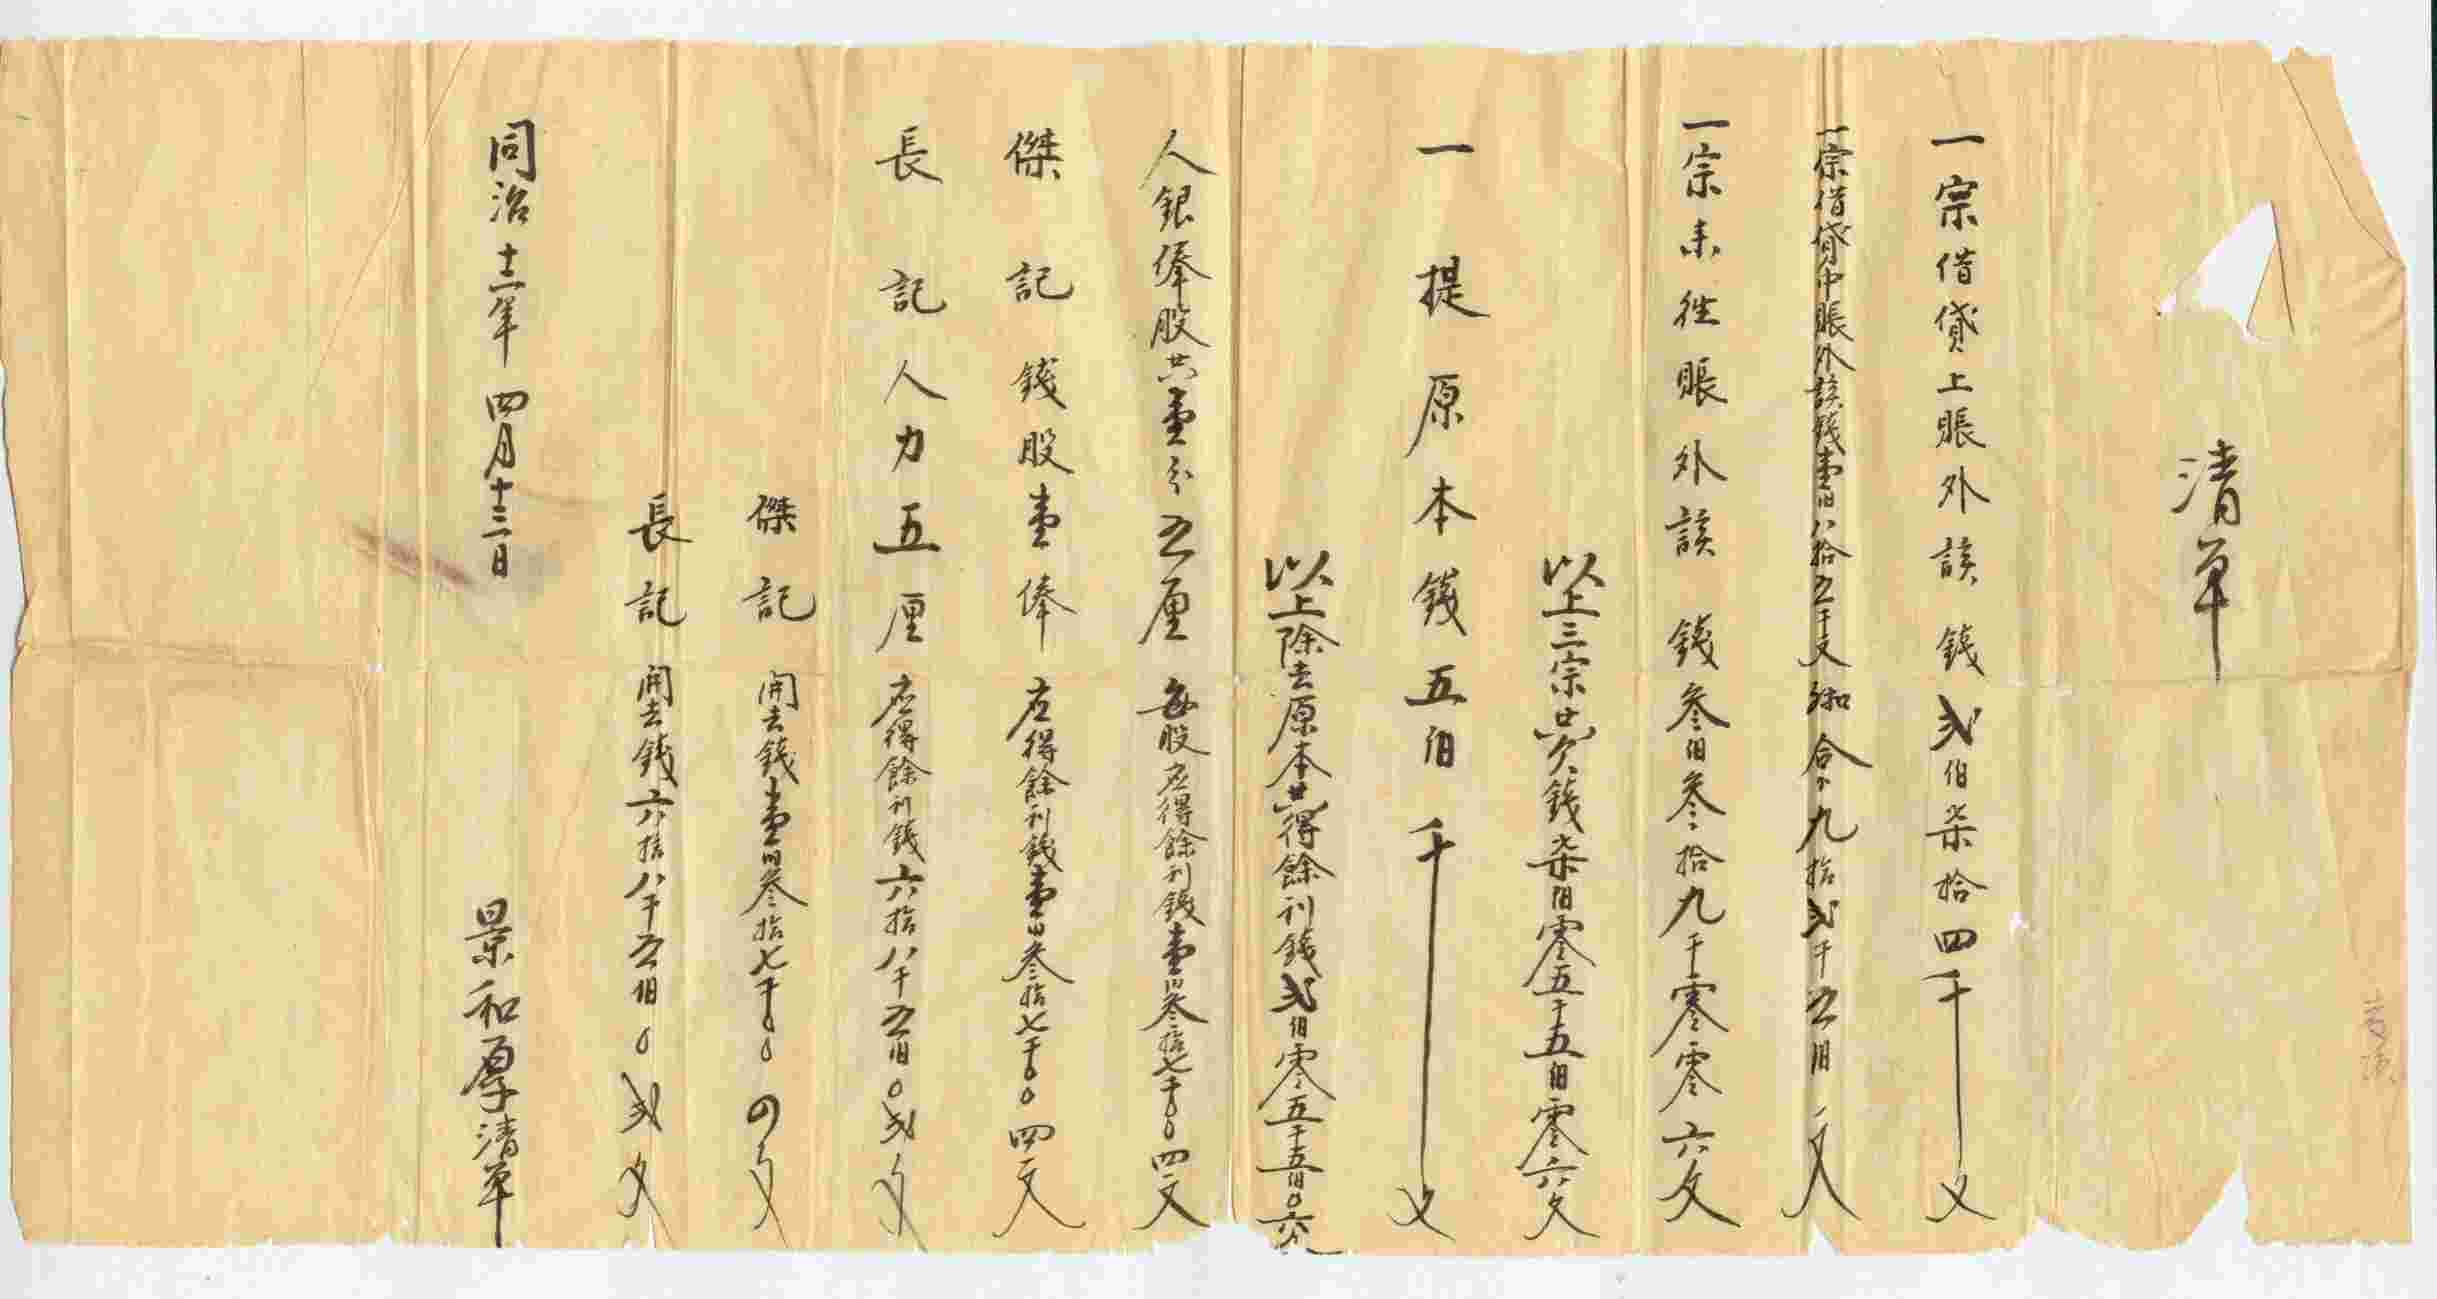 清單
一宗借貸上賬外該錢弍佰柒拾四千文
一宗借貸中賬外該錢壹佰八拾五千文 合錢九拾弍千五佰文
一宗未徃賬外該錢叁佰叁拾九千零零六文
以上三宗共欠錢柒佰零五千五佰零六文
一提原本錢五佰千文
以上除去原本共得餘利錢弍佰零五千五佰0六文
人銀俸股共壹分五厘 每股应得餘利錢壹佰叁拾七千00四文
傑記錢股壹俸 应得餘利錢壹佰叁拾七千00四文
長記人力五厘 应得餘利錢六拾八千五佰0弍文
傑記 開去錢壹佰叁拾七千00四文
長記 開去錢六拾八千五佰0弍文
同治十二年四月十三日 景和厚清單